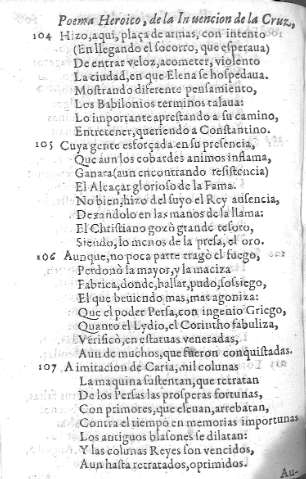 Poema Heroico, de la Inuencion de la Cruz,
104 Hizo, aqui, plaça de armas, con intento
(En llegando el socorro, que esperaua)
De entrar veloz, acometer, violento
La ciudad, en que Elena se hospedaua.
Mostrando diferente pensamiento,
Los Babilonios terminos talaua:
Lo importante aprestando a su camino,
Entretener, queriendo a Constantino.
105 Cuya gente esforçada en su presencia,
Que aun los cobardes animos inflama,
Ganara (aun encontrando resistencia)
El Alcaçar glorioso de la Fama.
No bien, hizo del suyo el Rey ausencia,
Dexandolo en las manos de la llama:
El Christiano gozò grande tesoro,
Siendo, lo menos de la presa, el oro.
106 Aunque, no poca parte tragò el fuego,
Perdonò la mayor, y la maciza
Fabrica, donde, hallar, pudo, sossiego,
El que beuiendo mas, mas agoniza:
Que el poder Persa, con ingenio Griego,
Quanto el Lydio, el Corintho fabuliza,
Verificò, en estatuas veneradas,
Aun de muchos, que fueron conquistadas.
107 A imitacion de Caria, mil colunas
La maquina sustentan, que retratan
De los Persas las prosperas fortunas,
Con primores, que eleuan, arrebatan,
Contra el tiempo en memorias importunas
Los antiguos blasones se dilatan:
Y las colunas Reyes son vencidos,
Aun hasta retratados, optimidos.
Au-